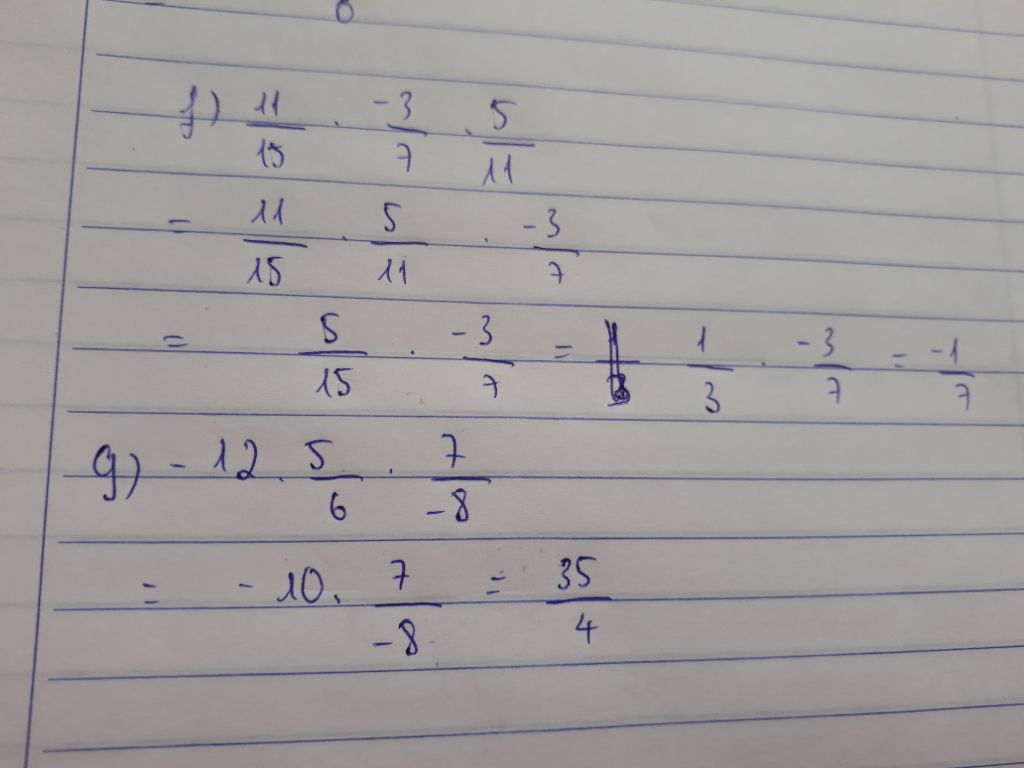 f) 11/15 . -3/7 . 5/11
= 11/15 . 5/11 . -3/7
= 5/15 . -3/7 = 1/3 . -3/7 = -1/7
g) -12 . 5/6 . 7/-8
= -10 . 7/-8 = 35/4